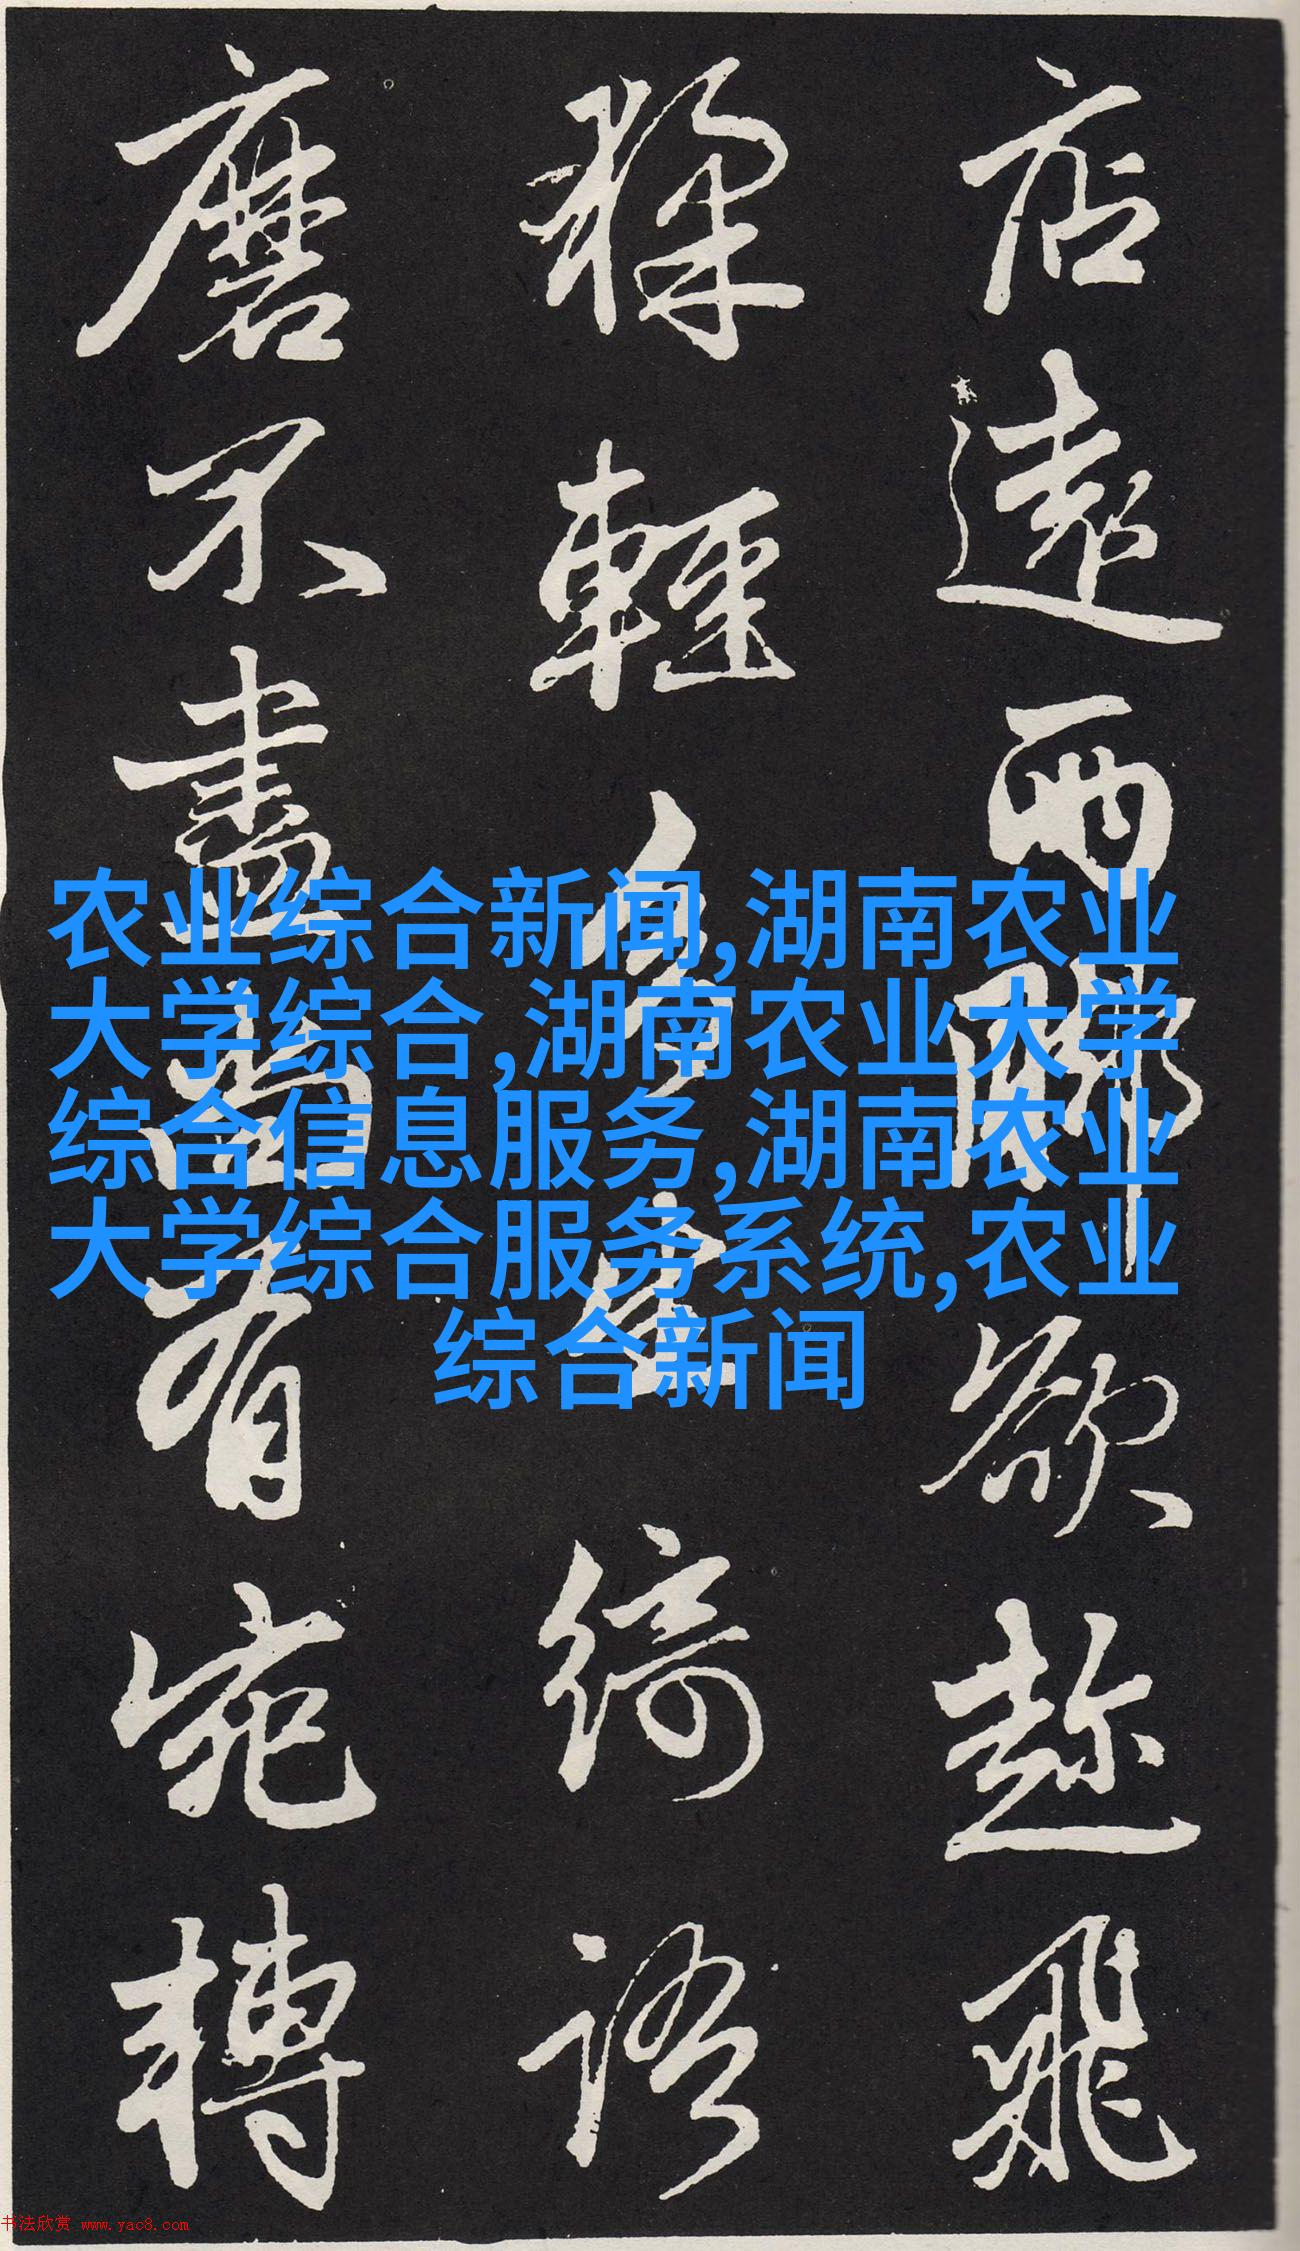 店遠兩脚欲趁飛
猱輕多生綺語
磨不盡尚有宛轉
农业综合新闻,湖南农业
大学综合,湖南农业大学
综合信息服务,湖南农业
大学综合服务系统,农业
综合新闻
书法欣赏 www.yac8.com